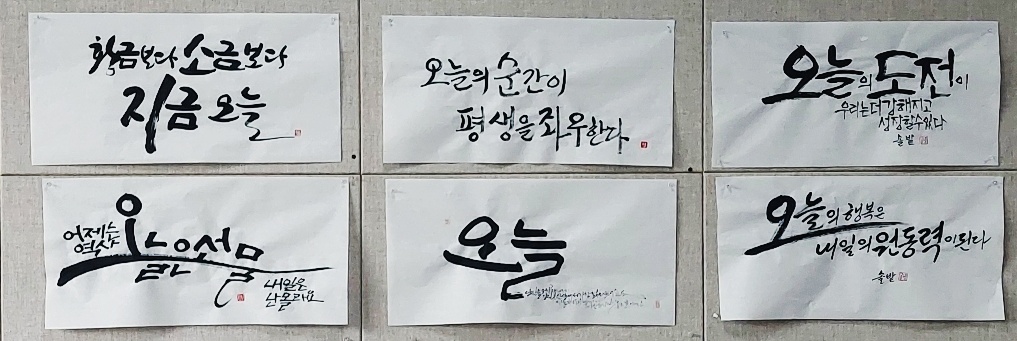 황금보다 소금보다
지금 오늘
오늘의 순간이
평생을 좌우한다.
오늘의 도전이
우리는 더 강해지고
성장할 수 있다
솔발
어제는
역사
오늘은 선물
내일은
난 몰라요
오늘
오늘의 행복은
내일의 원동력이 된다
솔발